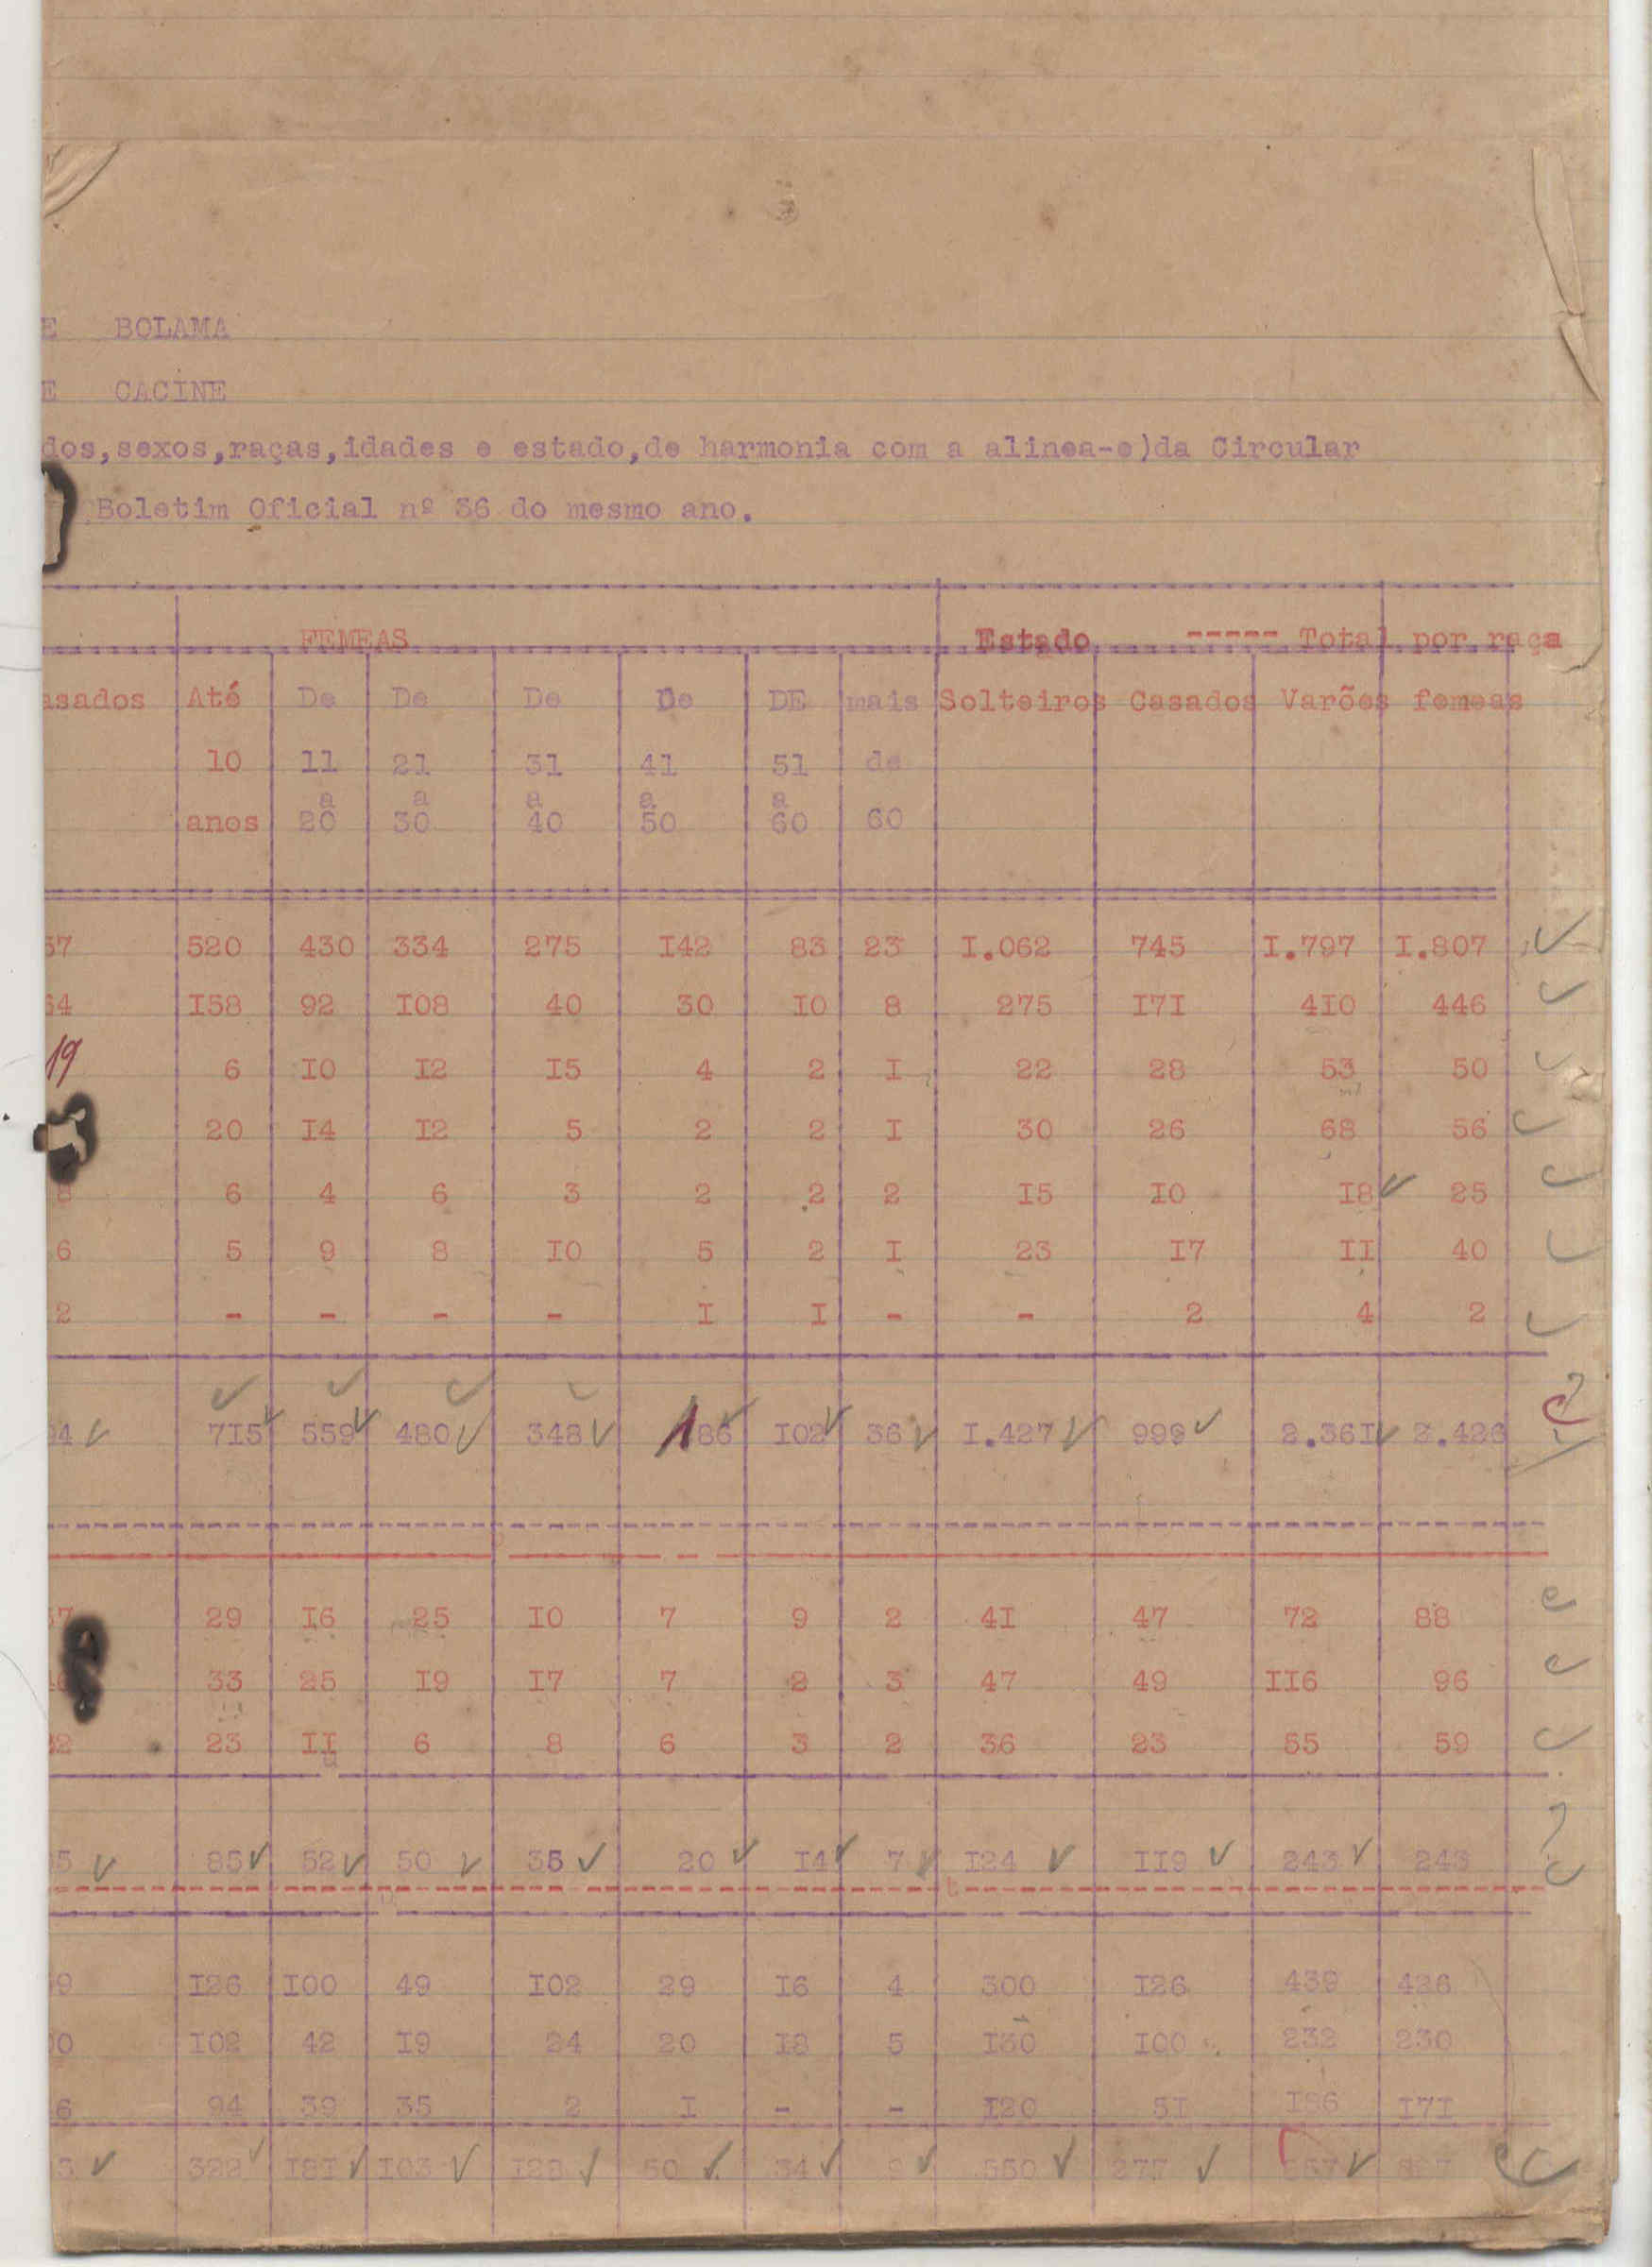 E BOLAMA
E CACINE
dos,sexos,raças,idades e estado,de harmonia com a alinea-e)da Circular
Boletim Oficial nº 36 do mesmo ano.
FEMEAS Estado ----- Total por raça
asados Até De De De De DE mais Solteiros Casados Varões femeas
10 11 21 31 41 51 de
a a a a a
anos 20 30 40 50 60 60
57 520 430 334 275 I42 83 23 I.062 745 I.797 I.807
64 I58 92 I08 40 30 I0 8 275 I7I 4I0 446
19 6 I0 I2 I5 4 2 I 22 28 53 50
20 I4 I2 5 2 2 I 30 26 68 56
8 6 4 6 3 2 2 2 I5 I0 I8 25
6 5 9 8 I0 5 2 I 23 I7 II 40
2 - - - - I I - - 2 4 2
94 7I5 559 480 348 186 I02 36 I.427 999 2.36I 2.426
57 29 I6 25 I0 7 9 2 4I 47 72 88
33 25 I9 I7 7 2 3 47 49 II6 96
32 23 II 6 8 6 3 2 36 23 55 59
5 85 52 50 35 20 I4 7 I24 II9 243 243
9 I26 I00 49 I02 29 I6 4 300 I26 439 426
0 I02 42 I9 24 20 I8 5 I30 I00 232 230
6 94 39 35 2 I - - I20 5I I86 I7I
3 322 I8I I03 I28 50 34 9 550 277 857 827